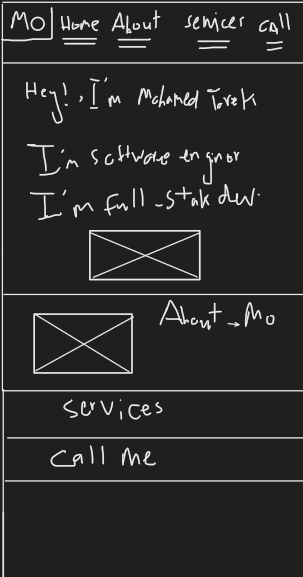 MO Home About services call
Hey!, I'm Mohamed Tarek
I'm software enginer
I'm full-stak dev.
About - Mo
services
call Me